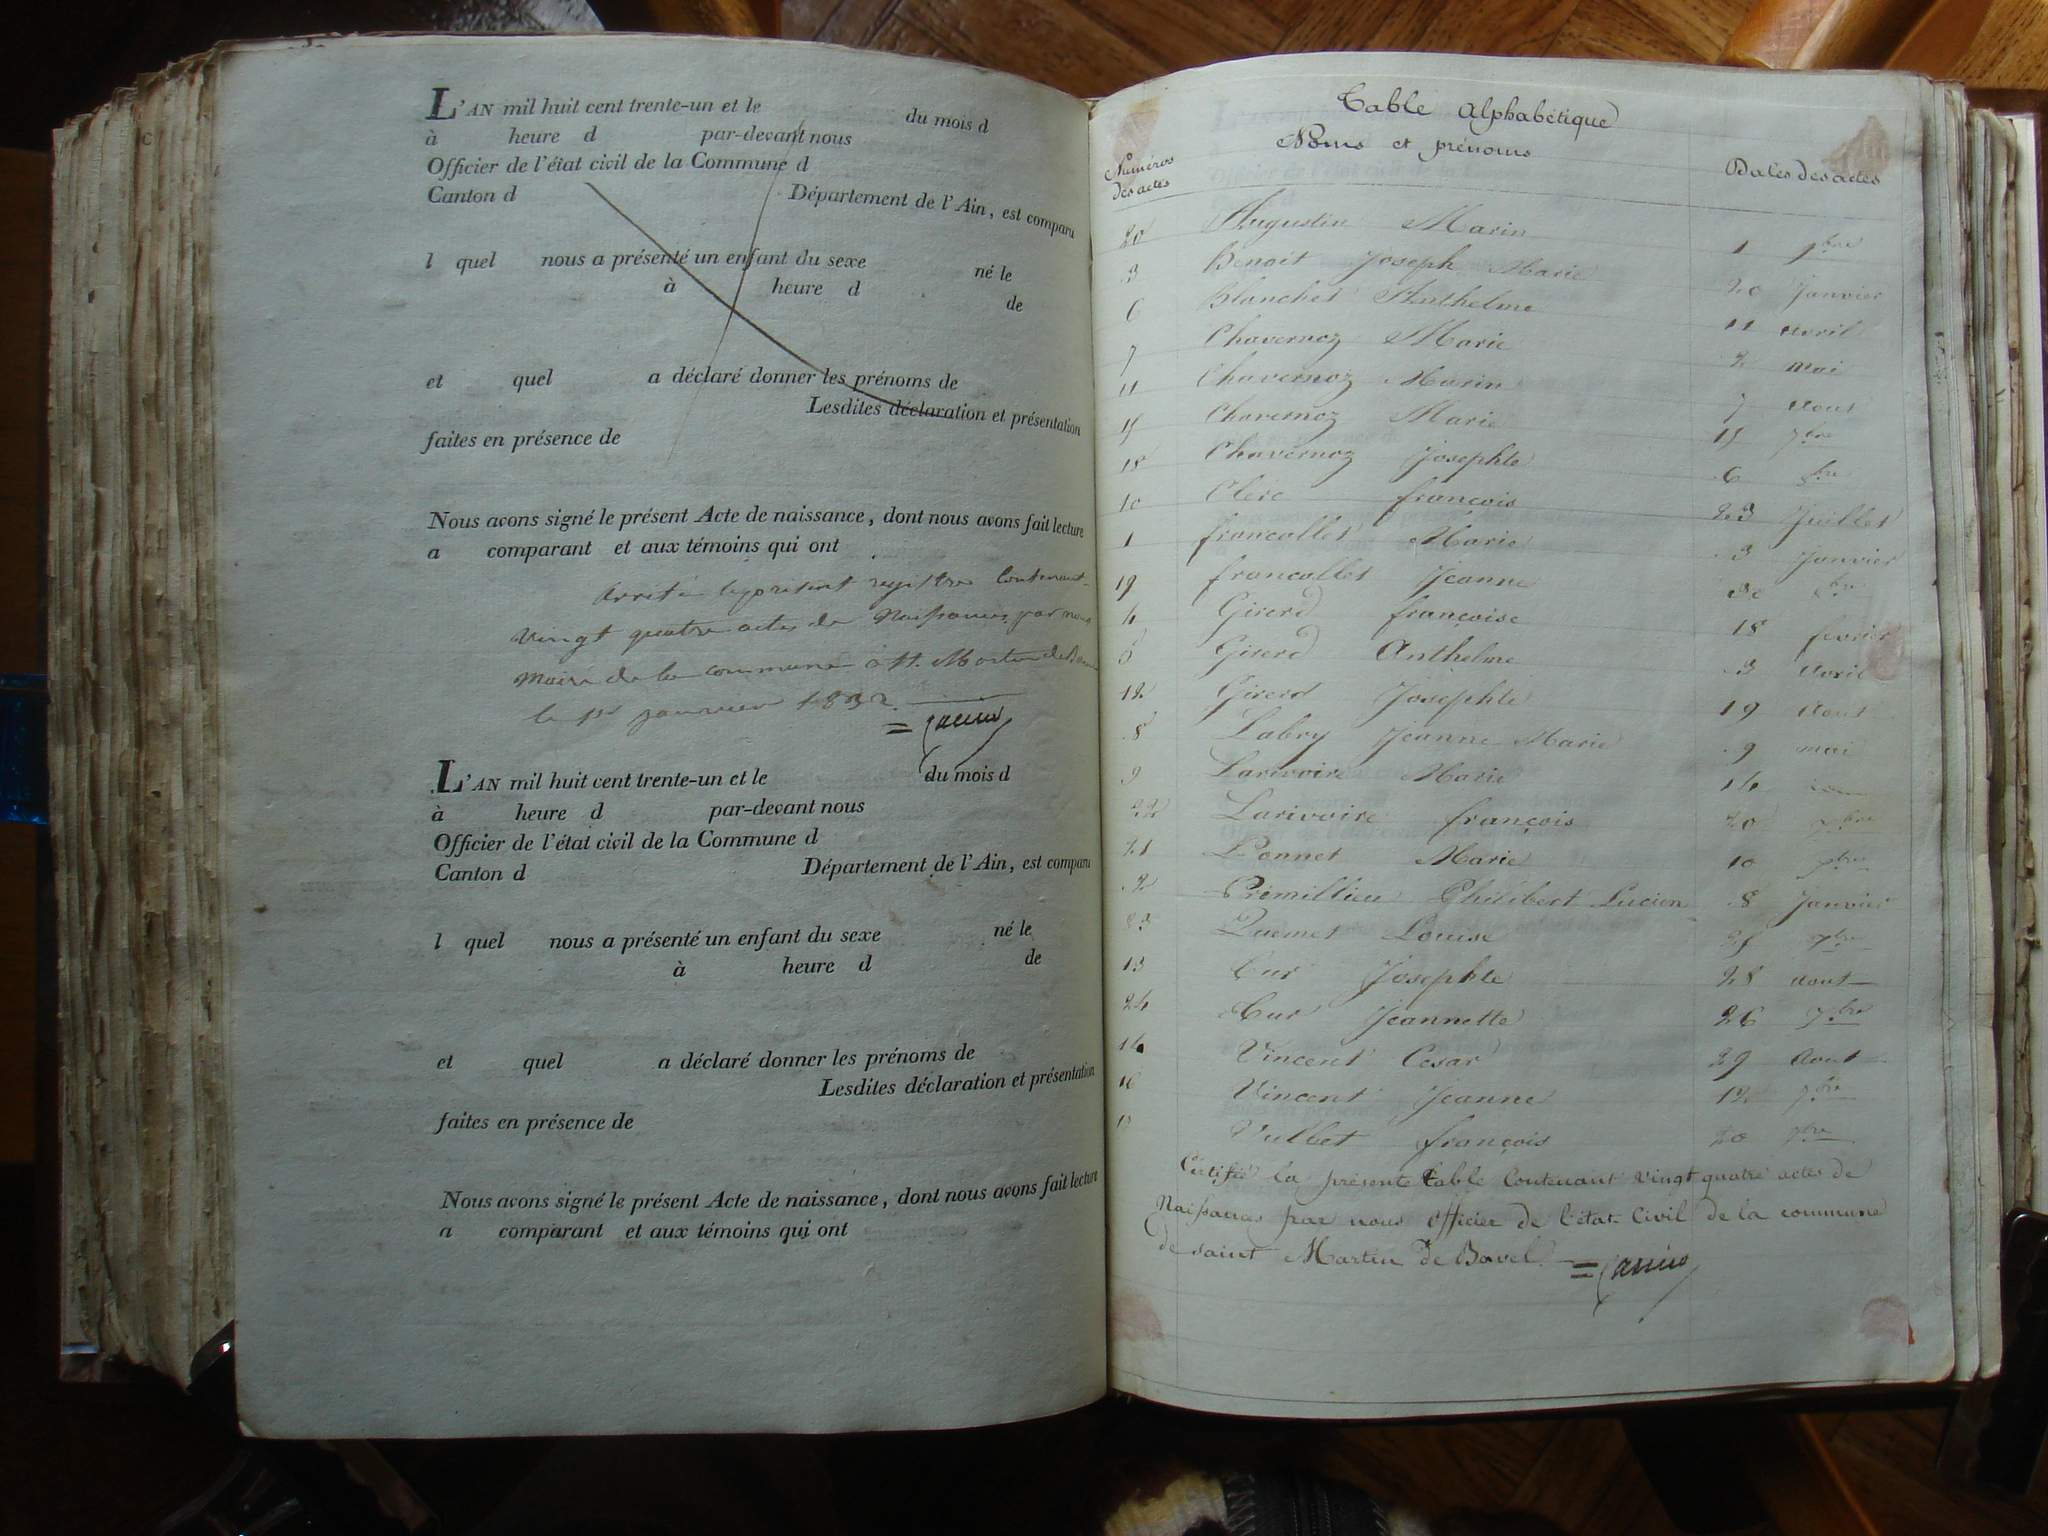 L'AN mil huit cent trente-un et le du mois d
à heure d par-devant nous
Officier de l'état civil de la Commune d
Canton d Département de l'Ain, est comparu
l quel nous a présenté un enfant du sexe né le
à heure d de
et quel a déclaré donner les prénoms de
Lesdites déclaration et présentation
faites en présence de
Nous avons signé le présent Acte de naissance, dont nous avons fait lecture
a comparant et aux témoins qui ont
arrêté le présent registre Contenant
vingt quatre actes de Naissances, par nous
maire de la commune St. Martin de
le 1er janvier 1832.
L'AN mil huit cent trente-un et le du mois d
à heure d par-devant nous
Officier de l'état civil de la Commune d
Canton d Département de l'Ain, est comparu
l quel nous a présenté un enfant du sexe né le
à heure d de
et quel a déclaré donner les prénoms de
Lesdites déclaration et présentation
faites en présence de
Nous avons signé le présent Acte de naissance, dont nous avons fait lecture
a comparant et aux témoins qui ont
Table Alphabétique
Numéros des actes Noms et prénoms Dates des actes
20 Augustin Marin 1 9bre
3 Benoit Joseph Marie 20 Janvier
6 Blanchet Anthelme 11 avril
7 Chavernoz Marie 2 mai
11 Chavernoz Marin 7 aout
15 Chavernoz Marie 15 7bre
18 Chavernoz Josephte 6 8bre
10 Clerc françois 23 Juillet
1 francollet Marie 3 Janvier
19 francollet Jeanne 30 8bre
4 Girerd françoise 18 fevrier
5 Girerd Anthelme 3 avril
12 Girerd Josephte 19 aout
8 Labry Jeanne Marie 9 mai
9 Larivoire Marie 14
22 Larivoire françois 20
21 Marie 10
2 Prémillieu Philibert Lucien 8 Janvier
23 Louise 25
13 Cur Josephte 28 aout
24 Cur Jeannette 26
14 Vincent Cesar 29 Aout
16 Vincent Jeanne 12 7bre
Vullet françois 20 7bre
Certifié la présente table Contenant vingt quatre actes de
Naissances par nous officier de l'état Civil de la commune
de saint Martin de Bavel.